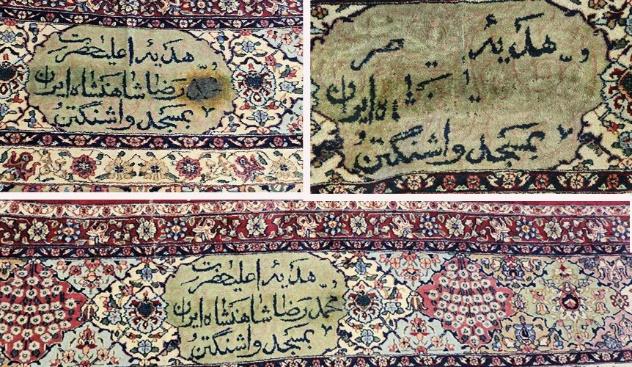 هدیۀ اعلیحضرت
رضا شاهنشاه ایران
بمسجد واشنگتن
هدیۀ
ایران
بمسجد واشنگتن
هدیۀ اعلیحضرت
محمد رضا شاهنشاه ایران
بمسجد واشنگتن